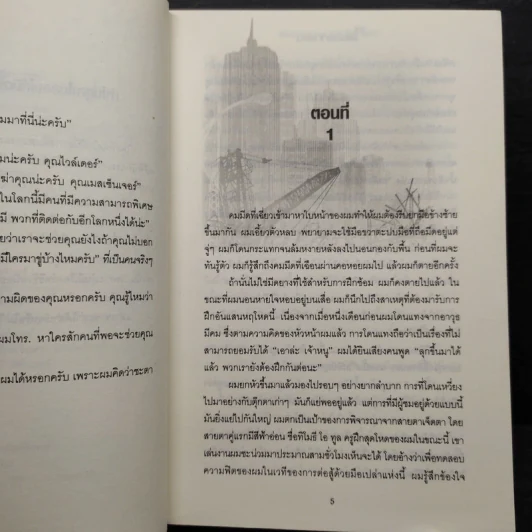 มมาที่นี่น่ะครับ"
มน่ะครับ คุณไวล์เดอร์"
ฆ่าคุณน่ะครับ คุณเมสเซ็นเจอร์"
ในโลกนี้มีคนที่มีความสามารถพิเศษ
มี พวกที่ติดต่อกับอีกโลกหนึ่งได้น่ะ"
ยว่าเราจะช่วยคุณยังไงถ้าคุณไม่บอก
มีใครมาขู่บ้างไหมครับ" ที่เป็นคนจริงๆ
ามผิดของคุณหรอกครับ คุณรู้ไหมว่า
ผมโทร. หาใครสักคนที่พอจะช่วยคุณ
ผมได้หรอกครับ เพราะผมคิดว่าชะตา
ตอนที่
1
คมมีดที่เฉี่ยวเข้ามาหาใบหน้าของผมทำให้ผมต้องรีบยกมือข้างซ้าย
ขึ้นมากัน ผมเอี้ยวตัวหลบ พยายามจะใช้มือขวาตะปบมือที่ถือมีดอยู่แต่
จู่ๆ ผมก็โดนกระแทกจนล้มหงายหลังลงไปนอนกองกับพื้น ก่อนที่ผมจะ
ทันรู้ตัว ผมก็รู้สึกถึงคมมีดที่เฉือนผ่านคอหอยผมไป แล้วผมก็ตายอีกครั้ง
ถ้านั่นไม่ใช่มีดยางที่ใช้สำหรับการฝึกซ้อม ผมก็คงตายไปแล้ว ใน
ขณะที่ผมนอนหายใจหอบอยู่บนเสื่อ ผมก็นึกไปถึงสาเหตุที่ต้องมารับการ
ฝึกอันแสนหฤโหดนี้ เนื่องจากเมื่อหนึ่งเดือนก่อนผมโดนแทงจากอาวุธ
มีคม ซึ่งตามความคิดของหัวหน้าผมแล้ว การโดนแทงถือว่าเป็นเรื่องที่ไม่
สามารถยอมรับได้ "เอาล่ะ เจ้าหนู" ผมได้ยินเสียงคนพูด "ลุกขึ้นมาได้
แล้ว พวกเรายังต้องฝึกกันต่อนะ"
ผมยกหัวขึ้นมาแล้วมองไปรอบๆ อย่างยากลำบาก การที่โดนเหวี่ยง
ไปมาอย่างกับตุ๊กตาเก่าๆ มันก็แย่พออยู่แล้ว แต่การที่มีผู้ชมอยู่ด้วยแบบนี้
มันยิ่งแย่ไปกันใหญ่ ผมตกเป็นเป้าของการพิจารณาจากสายตาเจ็ดตา โดย
สายตาคู่แรกมีสีฟ้าอ่อน ชื่อทิโมธี ไอ ทูล ครูฝึกสุดโหดของผมในขณะนี้ เขา
เล่นงานผมซะน่วมมาประมาณสามชั่วโมงเห็นจะได้ โดยอ้างว่าเพื่อทดสอบ
ความฟิตของผมในเวทีของการต่อสู้ด้วยมือเปล่าแห่งนี้ ผมรู้สึกข้องใจ
5